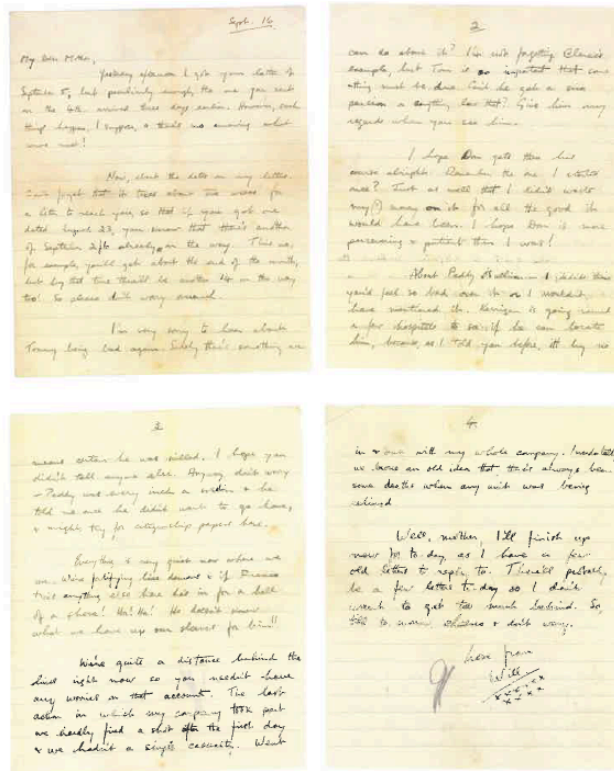 Sept. 16
My dear Mother,
Yesterday afternoon I got your letter of
September 5, but peculiarly enough, the one you sent
on the 6th arrived three days earlier. However, such
things happen, I suppose, & there's no knowing what
comes next!
Now, about the dates on my letters.
Don't forget that it takes about two weeks for
a letter to reach you, so that if you got one
dated August 23, you know that there's another
of September already on the way. This one,
for example, you'll get about the end of the month,
but by that time there'll be another on the way
too! So please don't worry
I'm very sorry to hear about
Tommy being bad again. Surely there's something we
2
can do about it? I'm not forgetting
example, but Tom is so important that some
thing must be done. Can't he get a
pension or anything like that? Give him my
regards when you see him.
I hope Dan gets thru his
course alright. Remember the one I started
once? Just as well that I didn't waste
my(?) money on it for all the good it
would have been. I hope Dan is more
persevering & patient than I was!
About Paddy O'Sullivan - I didn't think
you'd feel so bad over it or I wouldn't
have mentioned it. Kerrigan is going round
a few hospitals to see if he can locate
him, because, as I told you before, it's by no
3
means certain he was killed. I hope you
didn't tell anyone else. Anyway don't worry
- Paddy was every inch a soldier & he
told me once he didn't want to go home,
& might try for citizenship papers here.
Everything is very quiet now where we
are. We're fortifying like demons & if Franco
tries anything else here he's in for a hell
of a shock! Ha! Ha! He doesn't know
what we have up our sleeves for him!!
We're quite a distance behind the
lines right now so you needn't have
any worries on that account. The last
action in which my company took part
we hardly fired a shot after the first day
& we hadn't a single casualty. Went
4
in & out with my whole company.
we broke an old idea that there's always been
some deaths when any unit was being
relieved
Well, mother, I'll finish up
now for to-day, as I have a few
old letters to reply to. There'll
be a few letters to-day so I don't
want to get too much behind. So,
till to-morrow, cheerio & don't worry.
Love from
Will
xxxxxx
xxxxx